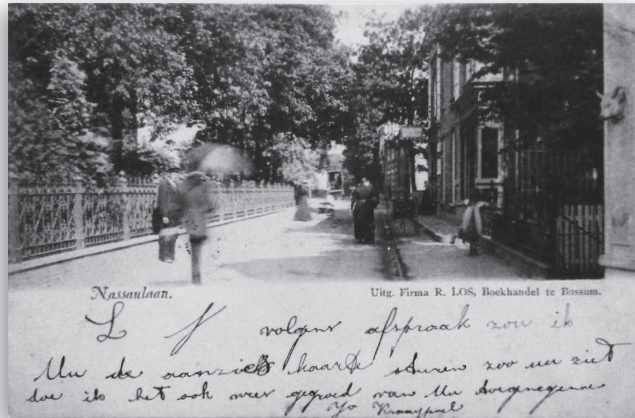 Nassaulaan.
Uitg. Firma R. LOS, Boekhandel te Bussum.
L J volgens afspraak zou ik
Uw de aanzicht kaarte sturen zoo uw ziet
doe ik het ook weer gegroed van Uw toegenegenne
Jo